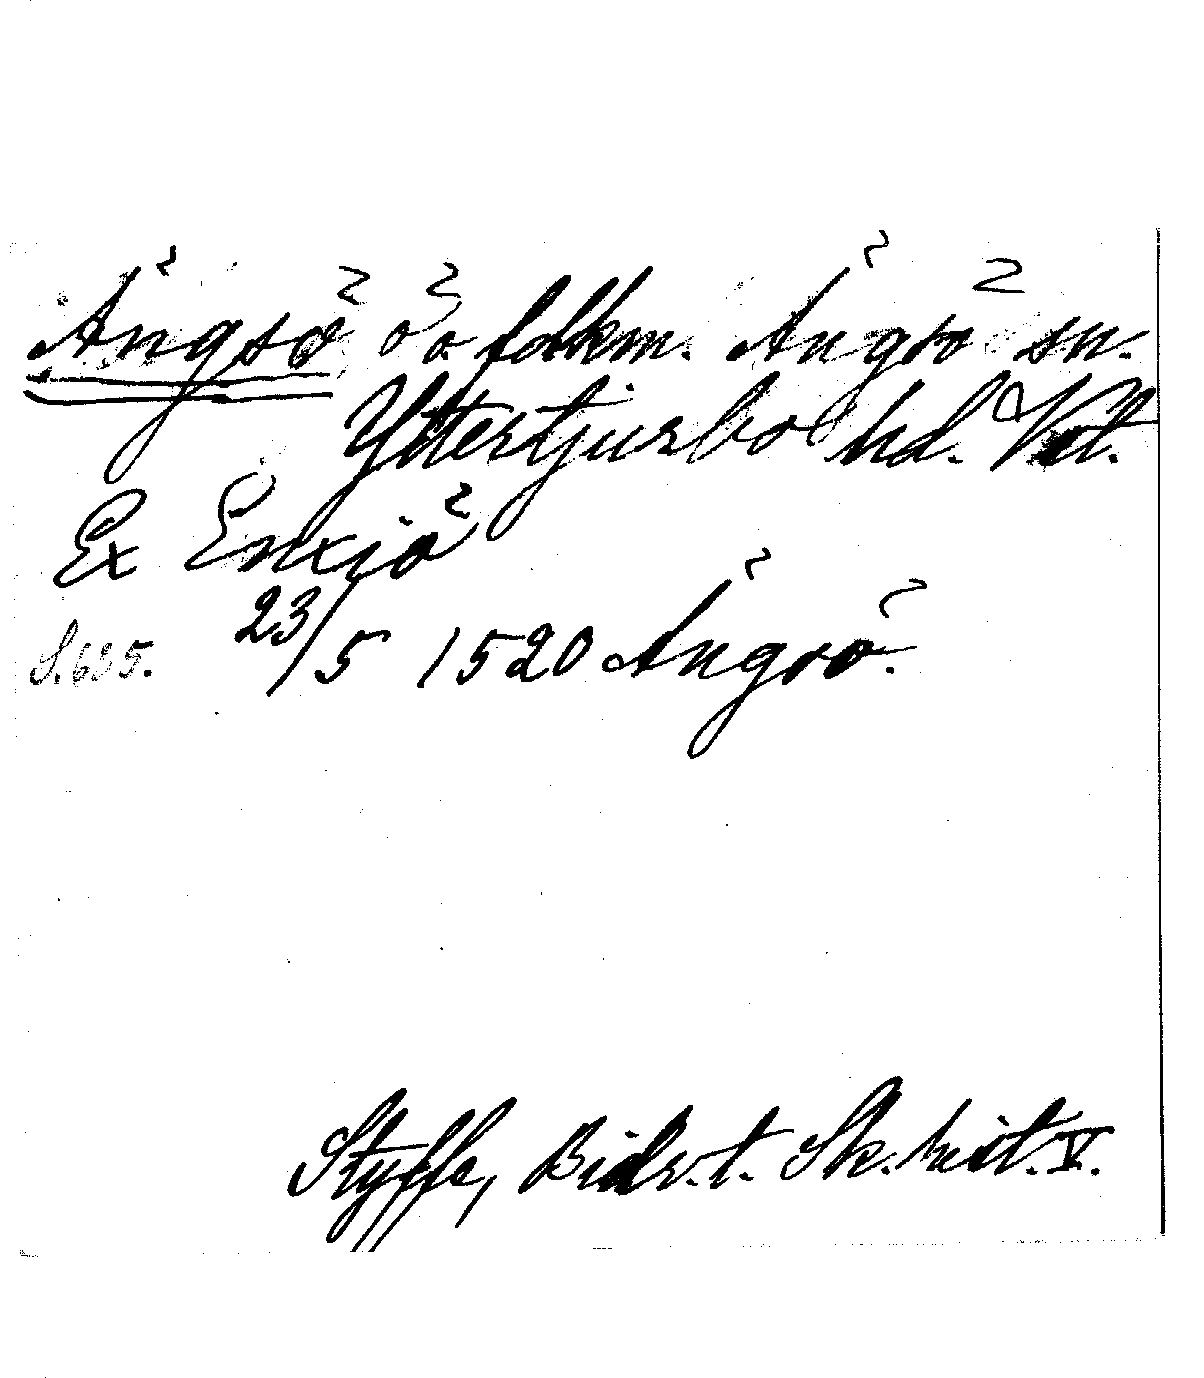 Ängsö ö o. fdkm. Ängsö sn.
Yttertjurbo hd. Vstm.
Ex Enxiö
S. 635. 23/5 1520 Ängsö.
Styffe, Bidr. t. Sk. hist. V.